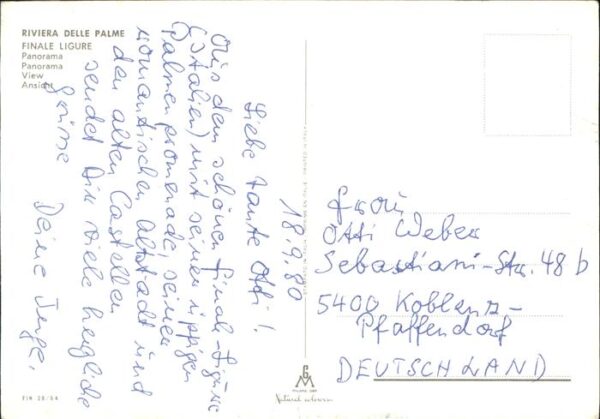 RIVIERA DELLE PALME
FINALE LIGURE
Panorama
Panorama
View
Ansicht
18.9.80
Liebe Tante Otti!
Aus dem schönen Finale-Ligure
(Italien) mit seinen üppigen
Palmenpromenade, seinen
romantischen Altstadt und
den alten Castellen
sendet Dir viele herzliche
Grüsse
Deine Inge.
Frau
Otti Weber
Sebastiani-Str. 48 b
5400 Koblenz-
Pfaffendorf
DEUTSCHLAND
FIN 28/54